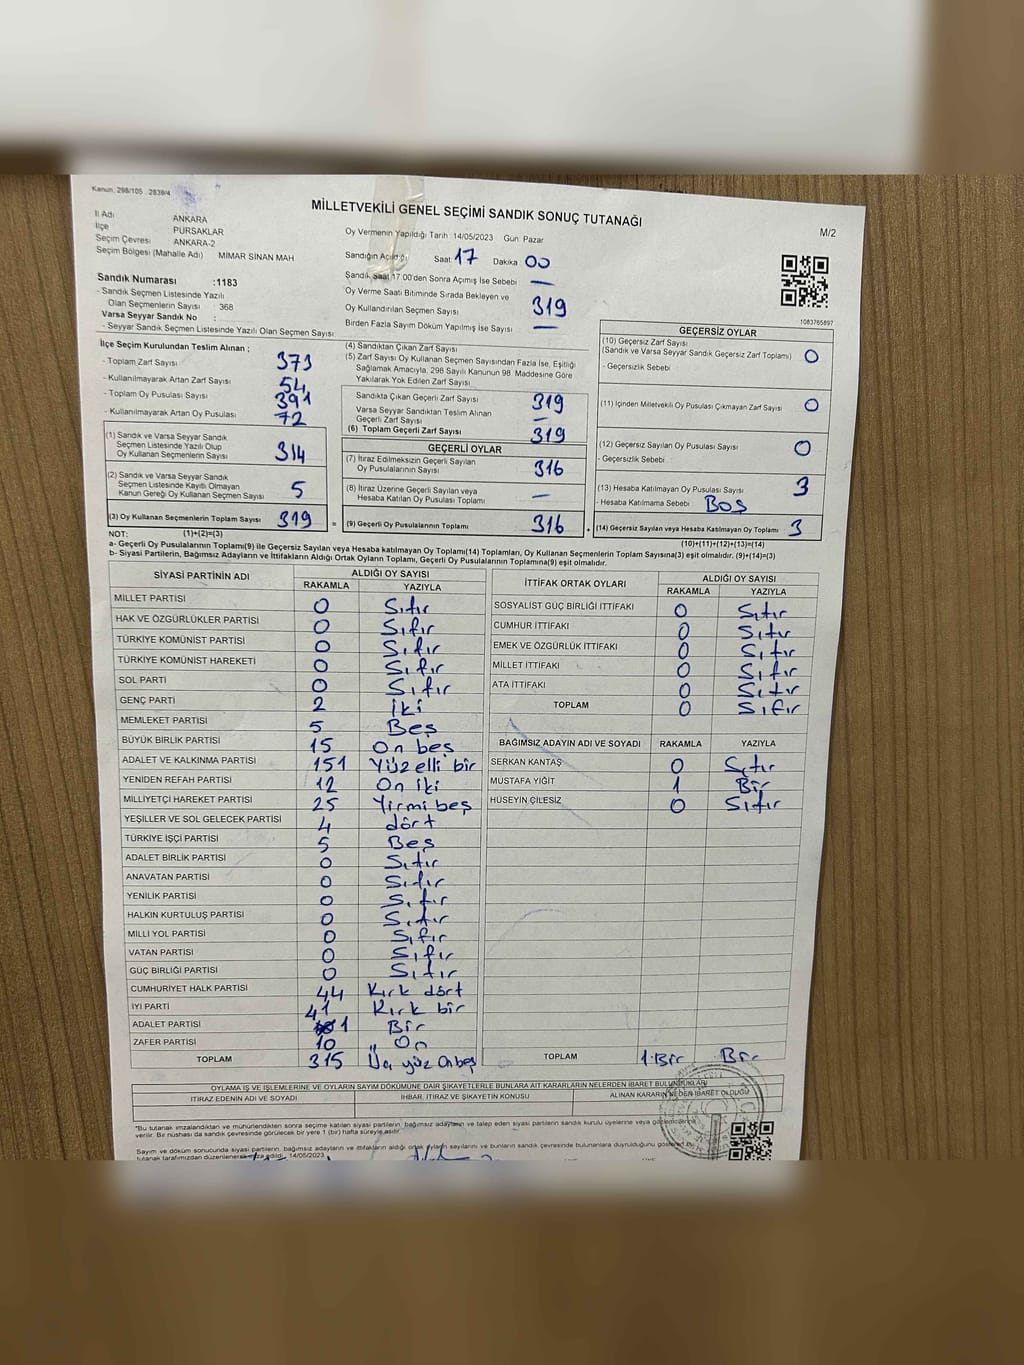 Kanun: 298/105 - 2839/4
MİLLETVEKİLİ GENEL SEÇİMİ SANDIK SONUÇ TUTANAĞI
M/2
İl Adı ANKARA
İlçe PURSAKLAR
Seçim Çevresi ANKARA-2
Seçim Bölgesi (Mahalle Adı) MİMAR SİNAN MAH
Oy Vermenin Yapıldığı Tarih 14/05/2023 Gün Pazar
Sandığın Açıldığı Saat 17 Dakika 00
Sandık Saat 17.00'den Sonra Açılmış İse Sebebi —
Oy Verme Saati Bitiminde Sırada Bekleyen ve
Oy Kullandırılan Seçmen Sayısı 319
Birden Fazla Sayım Döküm Yapılmış İse Sayısı —
Sandık Numarası :1183
- Sandık Seçmen Listesinde Yazılı
Olan Seçmenlerin Sayısı : 368
Varsa Seyyar Sandık No :
- Seyyar Sandık Seçmen Listesinde Yazılı Olan Seçmen Sayısı:
1083765897
İlçe Seçim Kurulundan Teslim Alınan ;
- Toplam Zarf Sayısı 373
- Kullanılmayarak Artan Zarf Sayısı 54
- Toplam Oy Pusulası Sayısı 391
- Kullanılmayarak Artan Oy Pusulası 72
(1) Sandık ve Varsa Seyyar Sandık
Seçmen Listesinde Yazılı Olup
Oy Kullanan Seçmenlerin Sayısı 314
(2) Sandık ve Varsa Seyyar Sandık
Seçmen Listesinde Kayıtlı Olmayan
Kanun Gereği Oy Kullanan Seçmen Sayısı 5
(3) Oy Kullanan Seçmenlerin Toplam Sayısı 319
(1)+(2)=(3)
(4) Sandıktan Çıkan Zarf Sayısı
(5) Zarf Sayısı Oy Kullanan Seçmen Sayısından Fazla İse, Eşitliği
Sağlamak Amacıyla, 298 Sayılı Kanunun 98. Maddesine Göre
Yakılarak Yok Edilen Zarf Sayısı
Sandıkta Çıkan Geçerli Zarf Sayısı 319
Varsa Seyyar Sandıktan Teslim Alınan
Geçerli Zarf Sayısı —
(6) Toplam Geçerli Zarf Sayısı 319
GEÇERLİ OYLAR
(7) İtiraz Edilmeksizin Geçerli Sayılan
Oy Pusulalarının Sayısı 316
(8) İtiraz Üzerine Geçerli Sayılan veya
Hesaba Katılan Oy Pusulası Toplamı —
= (9) Geçerli Oy Pusulalarının Toplamı 316
GEÇERSİZ OYLAR
(10) Geçersiz Zarf Sayısı
(Sandık ve Varsa Seyyar Sandık Geçersiz Zarf Toplamı) 0
- Geçersizlik Sebebi
(11) İçinden Milletvekili Oy Pusulası Çıkmayan Zarf Sayısı 0
(12) Geçersiz Sayılan Oy Pusulası Sayısı 0
- Geçersizlik Sebebi
(13) Hesaba Katılmayan Oy Pusulası Sayısı 3
- Hesaba Katılmama Sebebi Boş
+ (14) Geçersiz Sayılan veya Hesaba Katılmayan Oy Toplamı 3
(10)+(11)+(12)+(13)=(14)
NOT:
a- Geçerli Oy Pusulalarının Toplamı(9) ile Geçersiz Sayılan veya Hesaba katılmayan Oy Toplamı(14) Toplamları, Oy Kullanan Seçmenlerin Toplam Sayısına(3) eşit olmalıdır. (9)+(14)=(3)
b- Siyasi Partilerin, Bağımsız Adayların ve İttifakların Aldığı Ortak Oyların Toplamı, Geçerli Oy Pusulalarının Toplamına(9) eşit olmalıdır.
SİYASİ PARTİNİN ADI ALDIĞI OY SAYISI
RAKAMLA YAZIYLA
MİLLET PARTİSİ 0 Sıfır
HAK VE ÖZGÜRLÜKLER PARTİSİ 0 Sıfır
TÜRKİYE KOMÜNİST PARTİSİ 0 Sıfır
TÜRKİYE KOMÜNİST HAREKETİ 0 Sıfır
SOL PARTİ 0 Sıfır
GENÇ PARTİ 2 iki
MEMLEKET PARTİSİ 5 Beş
BÜYÜK BİRLİK PARTİSİ 15 On beş
ADALET VE KALKINMA PARTİSİ 151 Yüz elli bir
YENİDEN REFAH PARTİSİ 12 On iki
MİLLİYETÇİ HAREKET PARTİSİ 25 Yirmi beş
YEŞİLLER VE SOL GELECEK PARTİSİ 4 dört
TÜRKİYE İŞÇİ PARTİSİ 5 Beş
ADALET BİRLİK PARTİSİ 0 Sıfır
ANAVATAN PARTİSİ 0 Sıfır
YENİLİK PARTİSİ 0 Sıfır
HALKIN KURTULUŞ PARTİSİ 0 Sıfır
MİLLİ YOL PARTİSİ 0 Sıfır
VATAN PARTİSİ 0 Sıfır
GÜÇ BİRLİĞİ PARTİSİ 0 Sıfır
CUMHURİYET HALK PARTİSİ 44 Kırk dört
İYİ PARTİ 41 Kırk bir
ADALET PARTİSİ 1 Bir
ZAFER PARTİSİ 10 On
TOPLAM 315 Üç yüz Onbeş
İTTİFAK ORTAK OYLARI ALDIĞI OY SAYISI
RAKAMLA YAZIYLA
SOSYALİST GÜÇ BİRLİĞİ İTTİFAKI 0 Sıfır
CUMHUR İTTİFAKI 0 Sıfır
EMEK VE ÖZGÜRLÜK İTTİFAKI 0 Sıfır
MİLLET İTTİFAKI 0 Sıfır
ATA İTTİFAKI 0 Sıfır
TOPLAM 0 Sıfır
BAĞIMSIZ ADAYIN ADI VE SOYADI RAKAMLA YAZIYLA
SERKAN KANTAŞ 0 Sıfır
MUSTAFA YİĞİT 1 Bir
HÜSEYİN ÇİLESİZ 0 Sıfır
TOPLAM 1.Bir Bir
OYLAMA İŞ VE İŞLEMLERİNE VE OYLARIN SAYIM DÖKÜMÜNE DAİR ŞİKAYETLERLE BUNLARA AİT KARARLARIN NELERDEN İBARET BULUNDUKLARI
İTİRAZ EDENİN ADI VE SOYADI İHBAR, İTİRAZ VE ŞİKAYETİN KONUSU ALINAN KARARIN NEDEN İBARET OLDUĞU
*Bu tutanak imzalandıktan ve mühürlendikten sonra seçime katılan siyasi partilerin, bağımsız adayların ve talep eden siyasi partilerin sandık kurulu üyelerine veya gözlemcilerine
verilir. Bir nüshası da sandık çevresinde görülecek bir yere 1 (bir) hafta süreyle asılır.
Sayım ve döküm sonucunda siyasi partilerin, bağımsız adayların ve ittifakların aldığı ortak oyların sayılarını ve bunların sandık çevresinde bulunanlara duyurulduğunu gösteren bu
tutanak tarafımızdan düzenlenerek imza edildi. 14/05/2023